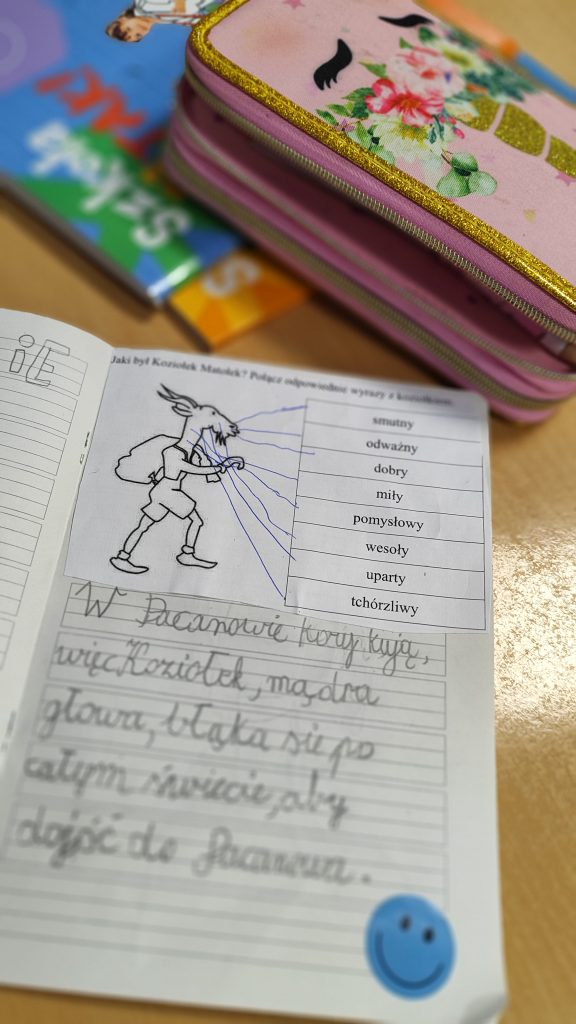 Szkoła
AK!
S
iE
Jaki był Koziołek Matołek? Połącz odpowiednie wyrazy z koziołkiem.
smutny
odważny
dobry
miły
pomysłowy
wesoły
uparty
tchórzliwy
W Pacanowie kozy kują,
więc Koziołek, mądra
głowa, błąka się po
całym świecie, aby
dojść do Pacanowa.